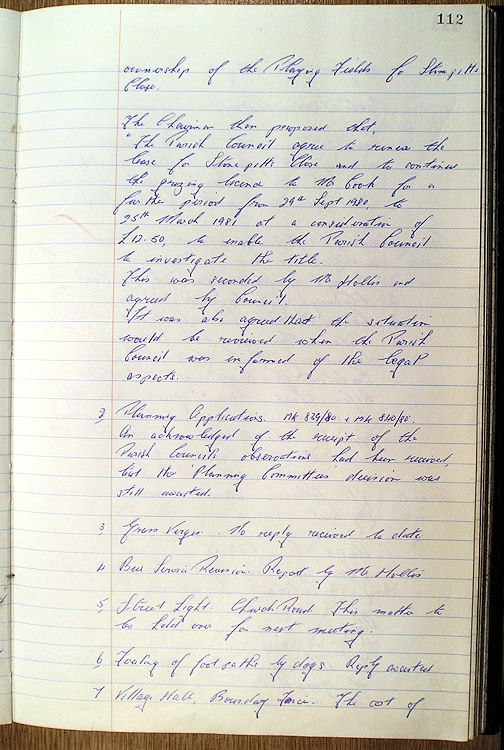 112
ownership of the Playing Fields for Stonepitts
Close.
The Chairman then proposed that,
"The Parish Council agree to renew the
lease for Stonepitts Close and to continue
the grazing licence to Mr Cook for a
further period from 29th Sept 1980, to
25th March 1981 at a consideration of
£12.50, to enable the Parish Council
to investigate the title.
This was seconded by Mr Hollis and
agreed by Council.
It was also agreed that the situation
would be reviewed when the Parish
Council was informed of the legal
aspects.
2, Planning Applications. MK 829/80 + MK 840/80.
An acknowledged of the receipt of the
Parish Councils observations had been received,
but the Planning Committees decision was
still awaited.
3, Grass Verges. No reply received to date
4, Bus Service Revision. Report by Mr Hollis
5, Street Light. Church Road. This matter to
be held over for next meeting.
6, Fouling of footpaths by dogs. Reply awaited
7, Village Hall, Boundary Fence. The cost of